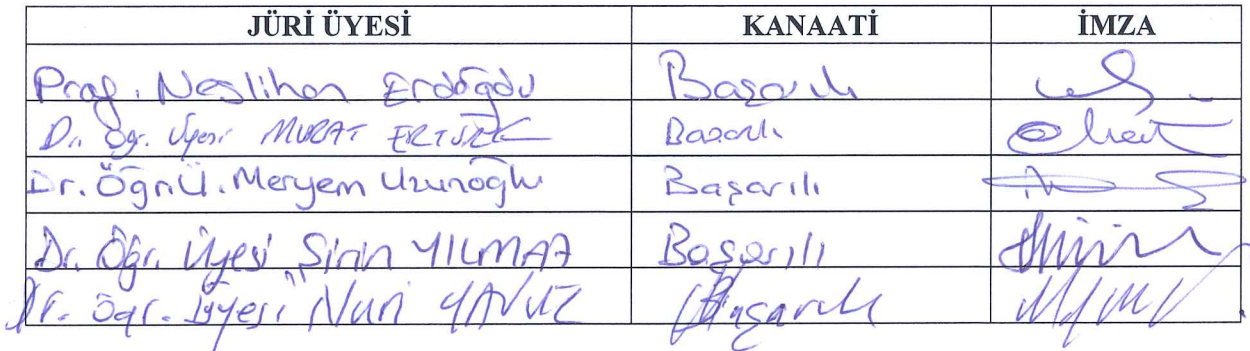 JÜRİ ÜYESİ KANAATİ İMZA
Prof. Neslihan Erdoğdu Başarılı
Dr. Öğr. Üyesi MURAT ERTÜRK Başarılı
Dr. Öğr.Ü. Meryem Uzunoğlu Başarılı
Dr. Öğr. Üyesi Şirin YILMAZ Başarılı
Dr. Öğr. Üyesi Nuri YAVUZ Başarılı